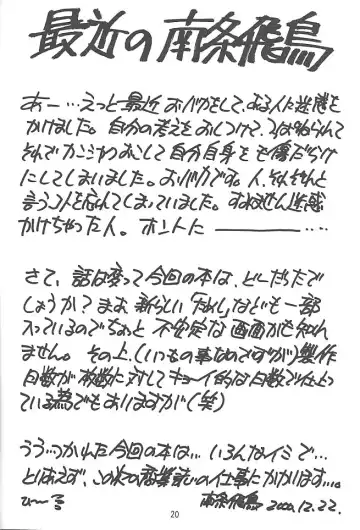 最近の南条飛鳥
あー…えっと最近おバカをして、ある人に迷惑を
かけました。自分の考えをおしつけて、つっぱねられて
それでカンシャクおこして自分自身をも傷だらけ
にしてしまいました。おバカです。人、それぞれと
言うコトを忘れてしまっていました。すいません迷惑
かけちゃった人。ホントに――――‥‥
さて、話は変って今回の本は、どーだったで
しょうか?まぁ新らしい「ためし」なども一部
入っているのでちょっと不安定な画面かも知れ
ません。その上、(いつもの事なのですが)製作
日数が枚数に対してキョーイ的な日数で仕上っ
ている為でもありますが(笑)
うう…つかれた今回の本は…いろんなイミで…
とりあえず、この次の商業誌の仕事にかかります…。
南条飛鳥 2000.12.22.
20